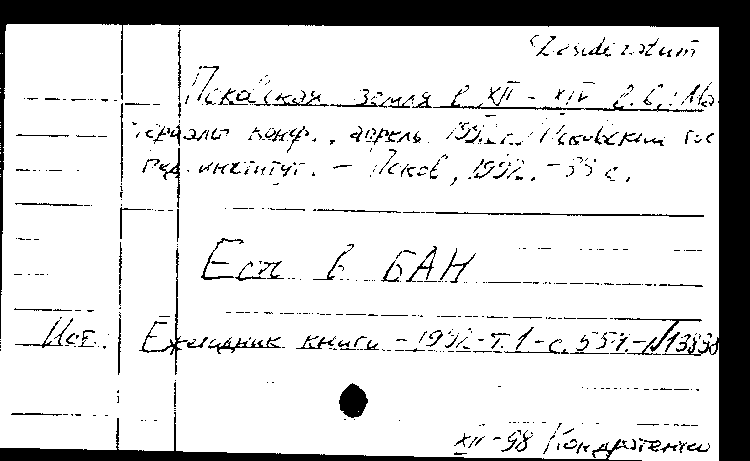 Desideratum
Псковская земля в XII - XIV в.в.: Ма-
териалы конф., апрель 1992 г. / Псковский гос
пед. институт. - Псков, 1992. - 55 с.
Есть в БАН
Ист. Ежегодник книги - 1992 - т. 1 - с. 557. - №13838
XII - 98 Кондратенко